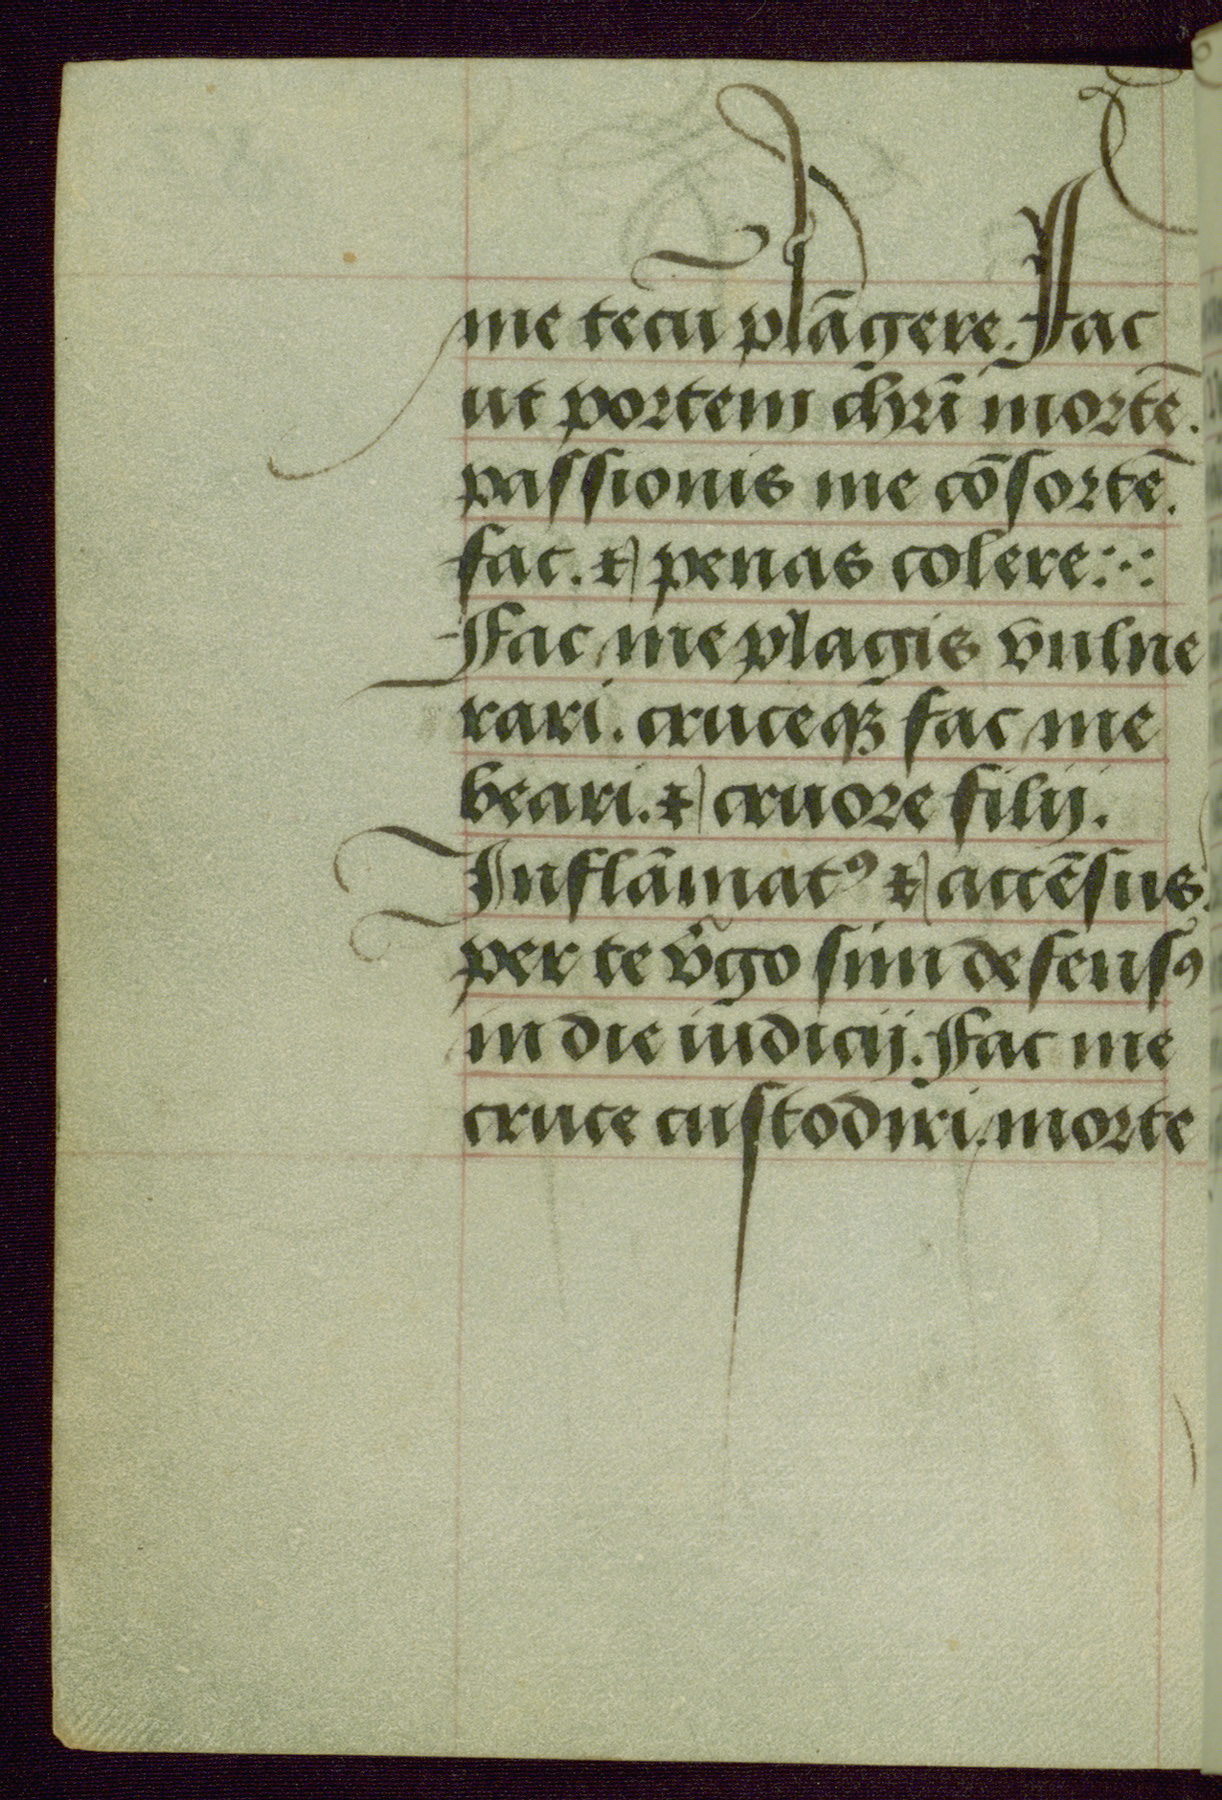 me tecū plāgere. Fac
ut portem chrī mortē.
passionis me cōsortē.
fac. et penas colere:·:
Fac me plagis vulne
rari. cruceqꝫ fac me
beari. et cruore filij.
Inflāmatꝰ et accēsus.
per te v̄go sim defensꝰ
in die iudicij. Fac me
cruce custodiri. morte